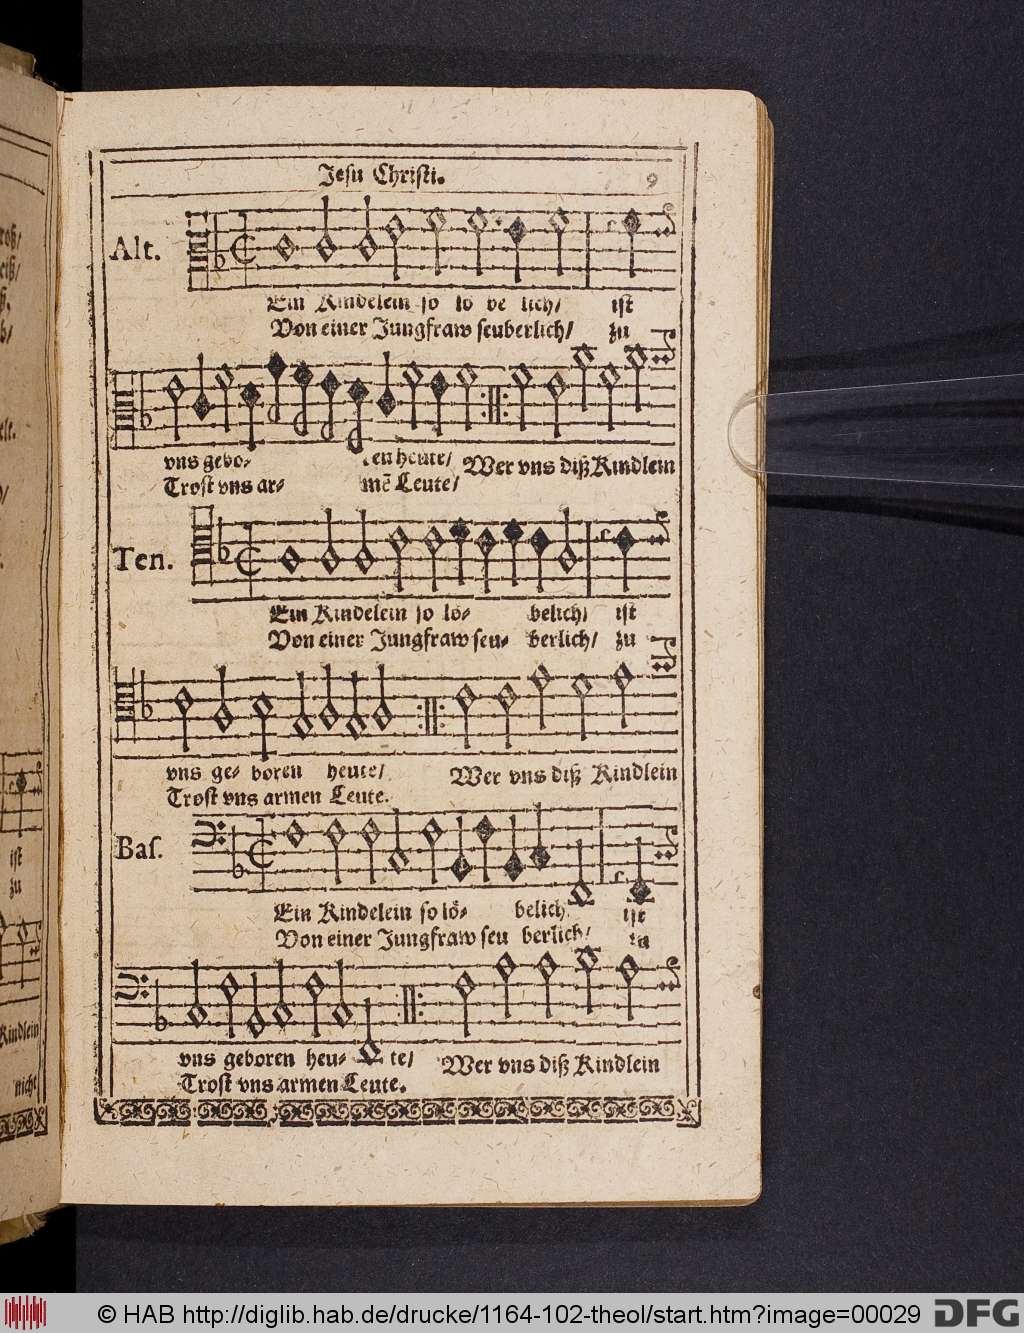 Jesu Christi.
9
Alt.
Ein Kindelein so lö be lich/ ist
Von einer Jungfraw seuberlich/ zu
vns gebo- ren heute/ Wer vns diß Kindlein
Trost vns ar- mē Leute/
Ten.
Ein Kindelein so lö- belich/ ist
Von einer Jungfraw seu- berlich/ zu
vns ge- boren heute/ Wer vns diß Kindlein
Trost vns armen Leute.
Bas.
Ein Kindelein so lö- belich/ ist
Von einer Jungfraw seu berlich/ zu
vns geboren heu- te/ Wer vns diß Kindlein
Trost vns armen Leute.
ist
zu
Kindlein
nicht
© HAB http://diglib.hab.de/drucke/1164-102-theol/start.htm?image=00029
DFG